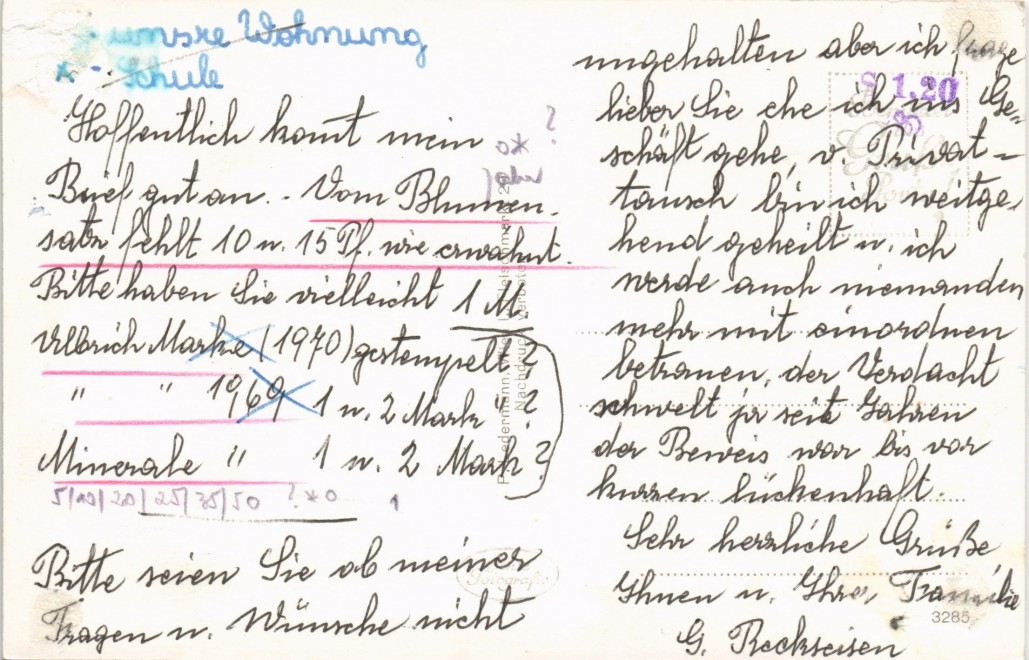 unsre Wohnung
* - Schule
Hoffentlich komt mein
Brief gut an. - Vom Blumen-
satz fehlt 10 u. 15 Pf. wie erwähnt.
Bitte haben Sie vielleicht 1 M
Ulbrich Marke (1970) gestempelt?
" " 1969 1 u. 2 Mark " ?
Minerale " 1 u. 2 Mark ?
5/10/20/25/35/50 ? * o 1
Bitte seien Sie ob meiner
Fragen u. Wünsche nicht
? o*
aber
ungehalten aber ich frage
lieber Sie ehe ich ins Ge-
schäft gehe, v. Privat-
tausch bin ich weitge-
hend geheilt u. ich
werde auch niemanden
mehr mit einordnen
betrauen, der Verdacht
schwelt ja seit Jahren
der Beweis war bis vor
kurzen lückenhaft.
Sehr herzliche Grüße
Ihnen u. Ihrer Familie
G. Reckseisen
S 1.20
8
Nachdruck verboten
Fotografie
3285